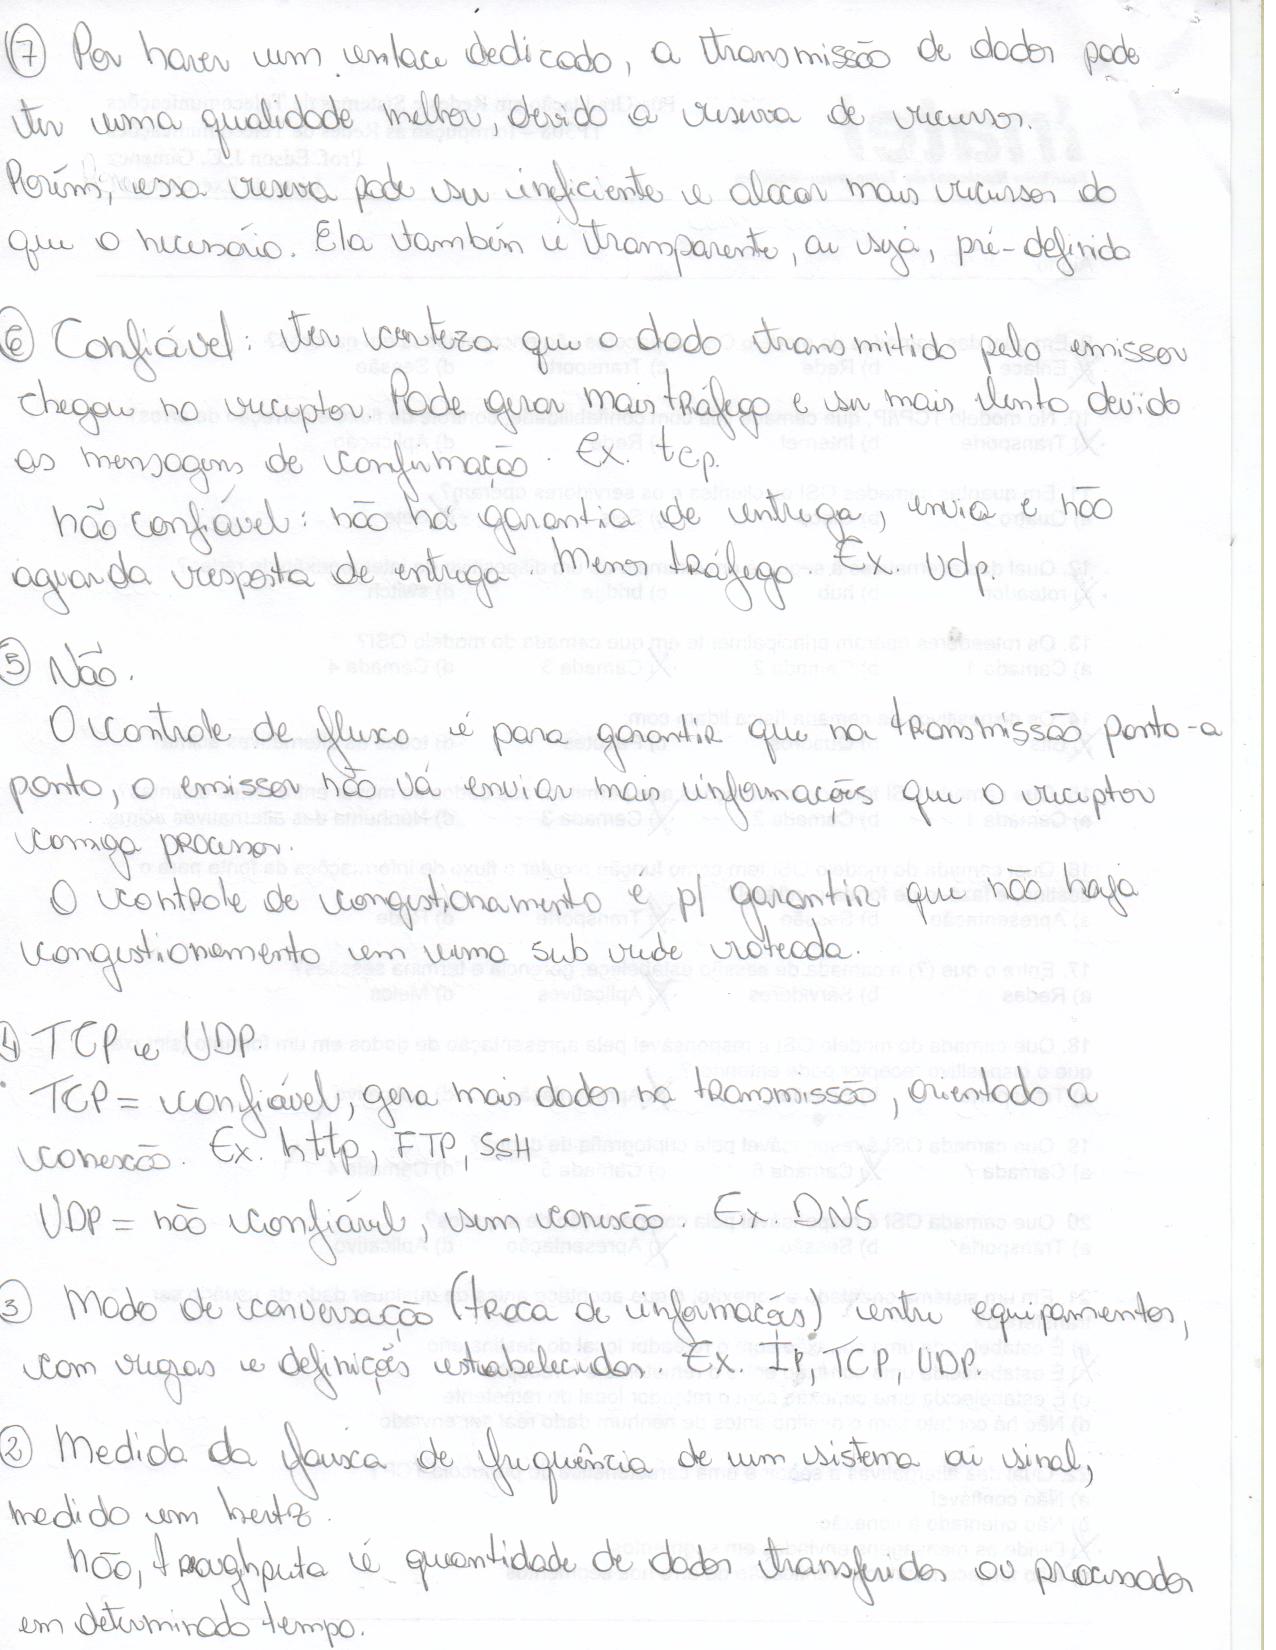 ⑦ Por haver um enlace dedicado, a transmissão de dados pode
ter uma qualidade melhor, devido a reserva de recursos.
Porém, essa reserva pode ser ineficiente e alocar mais recursos do
que o necessário. Ela também é transparente, ou seja, pré-definida
⑥ Confiável: ter certeza que o dado transmitido pelo emissor
chegou no receptor. Pode gerar mais tráfego e ser mais lento devido
as mensagens de confirmação. Ex. tcp.
não confiável: não há garantia de entrega, envia e não
aguarda resposta de entrega. Menos tráfego. Ex. Udp.
⑤ Não.
O controle de fluxo é para garantir que na transmissão ponto-a
ponto, o emissor não vá enviar mais informações que o receptor
consiga processar.
O controle de congestionamento é p/ garantir que não haja
congestionamento em uma sub rede roteada.
④ TCP e UDP.
TCP = confiável, gera mais dados na transmissão, orientado a
conexão. Ex. http, FTP, SSH
UDP = não confiável, sem conexão. Ex. DNS
③ Modo de conversação (troca de informações) entre equipamentos,
com regras e definições estabelecidas. Ex. IP, TCP, UDP.
② Medida da faixa de frequência de um sistema ou sinal,
medido em hertz.
Não, troughputa é quantidade de dados transferidos ou processados
em determinado tempo.